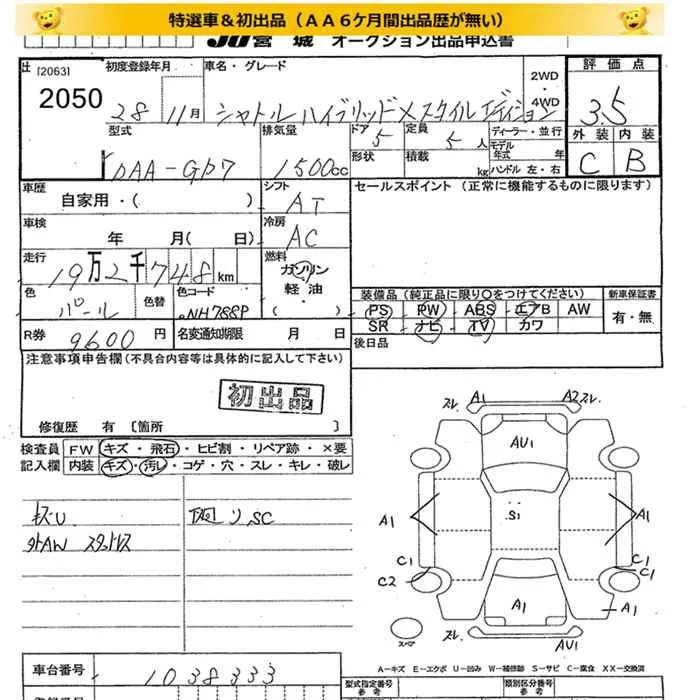 特選車＆初出品（ＡＡ６ケ月間出品歴が無い）
JU宮城 オークション出品申込書
[2063] 初度登録年月 車名・グレード 2WD・4WD 評価点
2050 28 11月 シャトル ハイブリッド X スタイル エディション 3.5
型式 排気量 ドア 定員 ディーラー・並行 外装 内装
DAA-GP7 1500cc 5 5人 モデル年式 年 C B
形状 積載 kg ハンドル 左・右
車歴 シフト セールスポイント（正常に機能するものに限ります）
自家用・（ ） AT
車検 冷房
年 月（ 日） AC
走行 燃料
19万2千748km ガソリン・軽油（ ）
色 色替 色コード 装備品（純正品に限り○をつけてください） 新車保証書
パール NH788P PS PW ABS エアB AW 有・無
SR ナビ TV カワ
R券 9600円 名変通知期限 月 日 後日品
注意事項申告欄（不具合内容等は具体的に記入して下さい）
初出品
修復歴 有〔箇所 〕
検査員記入欄 FW キズ・飛石・ヒビ割・リペア跡・×要
内装 キズ・汚レ・コゲ・穴・スレ・キレ・破レ
キズU
タトAW スタットレス
リ SC
スレ A1 A2 スレ
AU1
A1 S1 A1
C1 C1
C2 C1
A1 A1
スペア スレ AU1
A−キズ E−エクボ U−凹み W−補修跡 S−サビ C−腐食 XX−交換済
車台番号 1038333 型式指定番号 参考 類別区分番号 参考